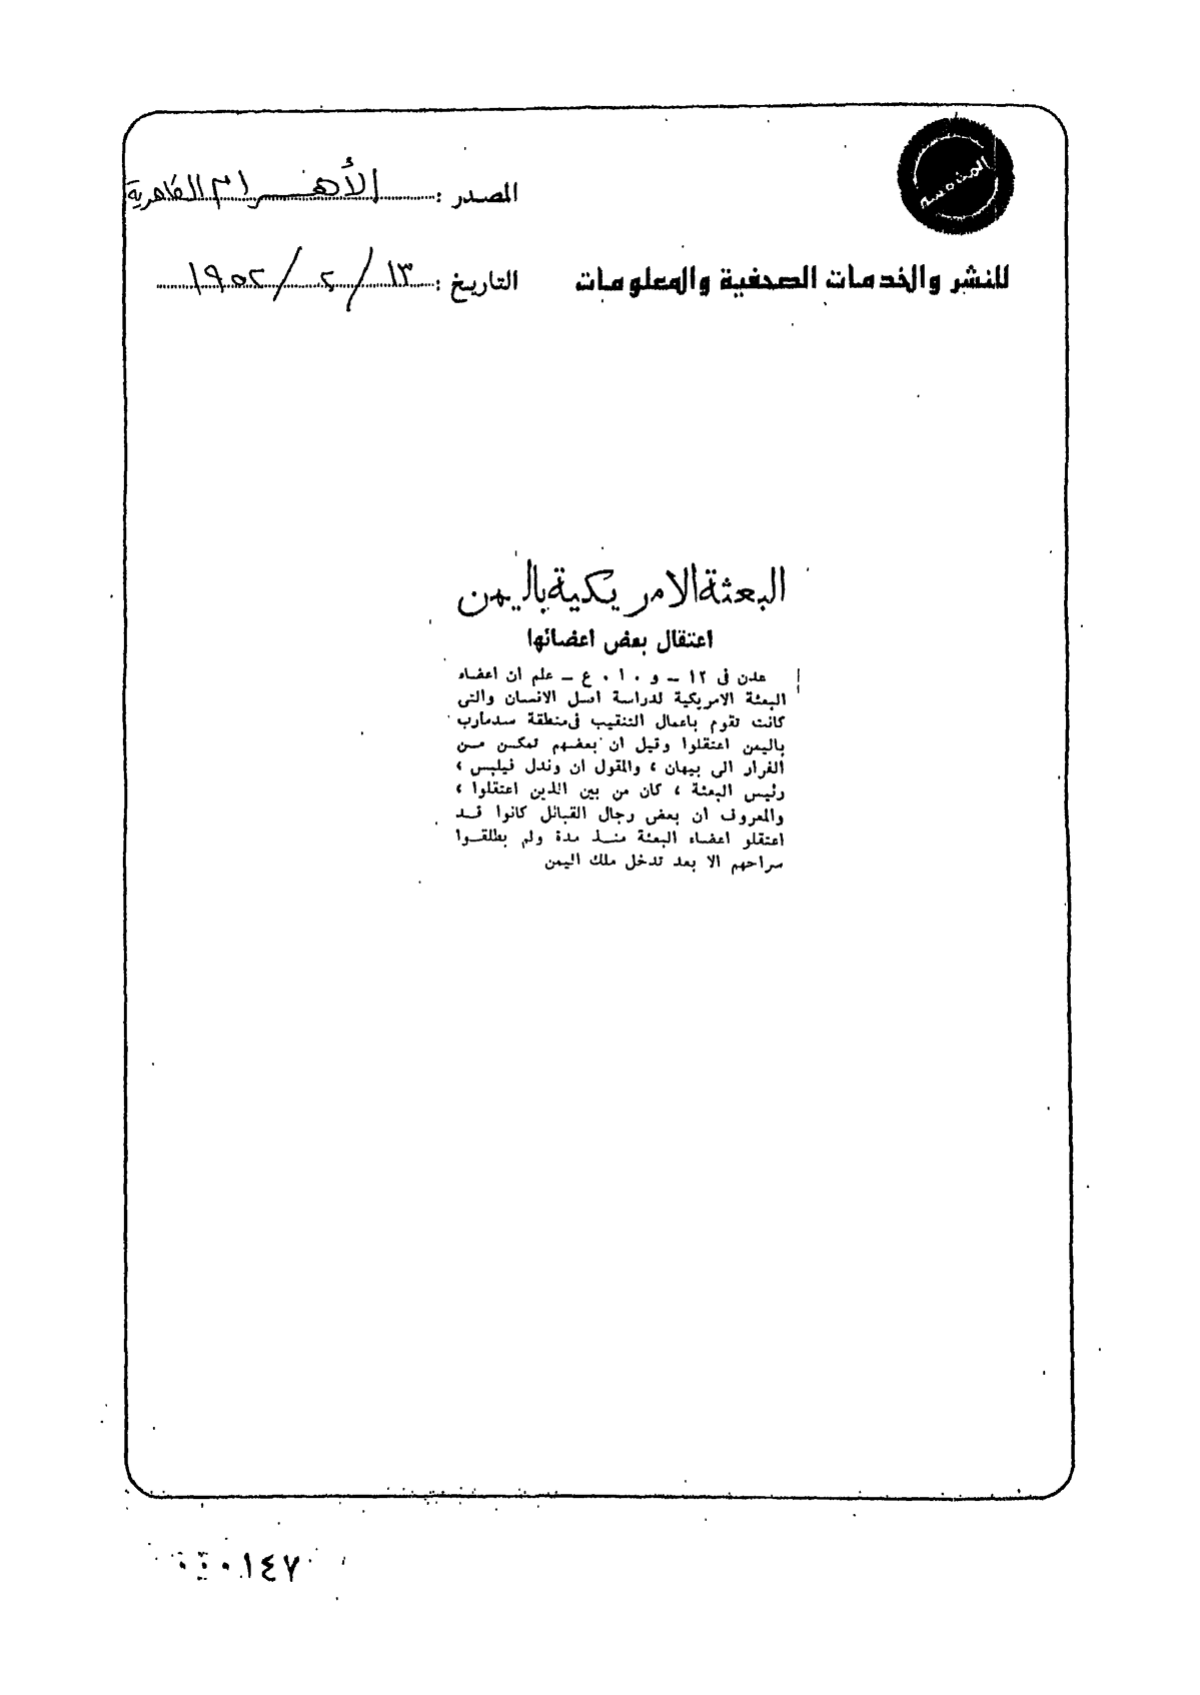 المصدر : الأهرام القاهرية
للنشر والخدمات الصحفية والمعلومات
التاريخ : ١٣/٢/١٩٥٢
البعثة الامريكية باليمن
اعتقال بعض اعضائها
عدن فى ١٢ ـ و . ا . ع ـ علم ان اعضاء
البعثة الامريكية لدراسة اصل الانسان والتى
كانت تقوم باعمال التنقيب فى منطقة سد مارب
باليمن اعتقلوا وقيل ان بعضهم تمكن من
الفرار الى بيهان ، والمقول ان وندل فيلبس ،
رئيس البعثة ، كان من بين الذين اعتقلوا ،
والمعروف ان بعض رجال القبائل كانوا قد
اعتقلو اعضاء البعثة منذ مدة ولم يطلقوا
سراحهم الا بعد تدخل ملك اليمن
٠٠٠١٤٧